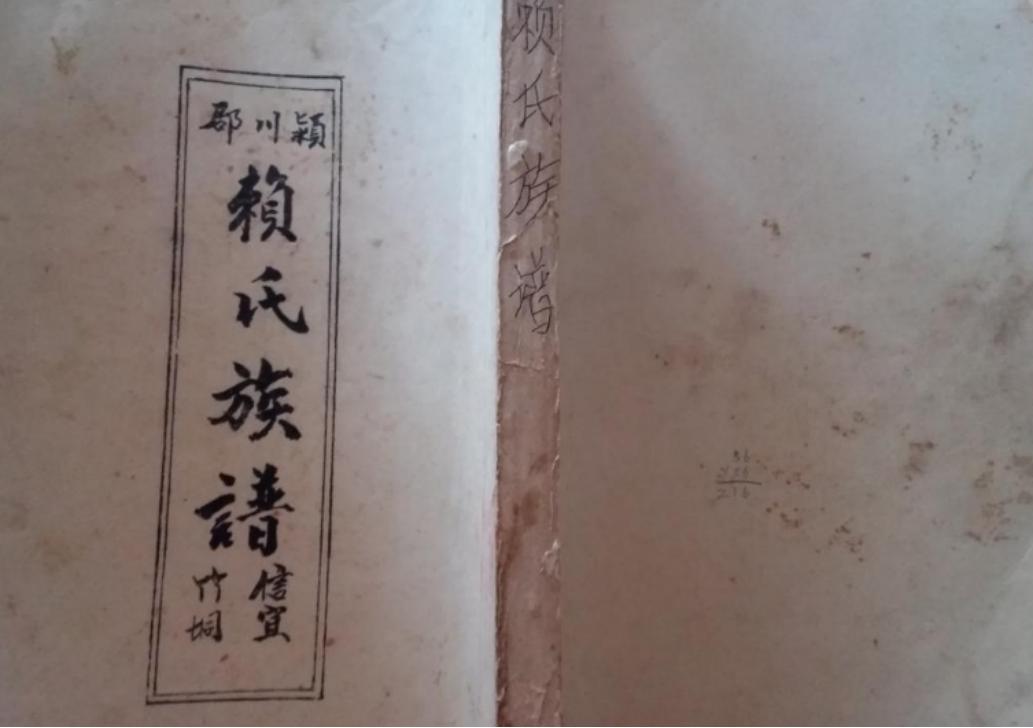 潁川郡
賴氏族譜
信宜
竹垌
赖氏族谱
36
216